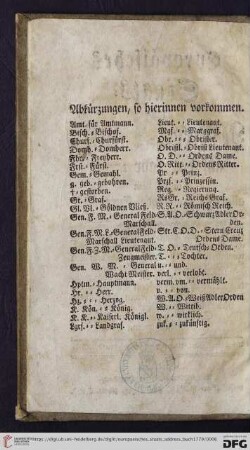 Abkürzungen, so hierinnen vorkommen.
Amt. für Amtmann.
Bisch. = Bischof.
Churf. = Churfürst.
Domh. = Domherr.
Frhr. = Freyherr.
Frst. = Fürst.
Gem. = Gemahl.
g. geb. = gebohren.
†. = gestorben.
Gr. = Graf.
Gl. Vl. = Göldner Vließ.
Gen. F. M. = General Feld-
Marschall.
Gen. F. M. L. = General Feld-
Marschall Lieutenant.
Gen. F. Z. M. = General Feld-
Zeugmeister.
Gen. W. M. = General
Wacht Meister.
Hptm. = Hauptmann.
Hr. = = Herr.
Hz. = = Herzog.
K. Kön. = = König.
K. K. = = Kaiserl. Königl.
Lgrf. = Landgraf.
Lieut. = = Lieutenant.
Mgf. = = Marggraf.
Obr. = = Obrister.
Obristl. = Obrist Lieutenant.
O. D. = = Ordens Dame.
O. Ritt. = = Ordens Ritter.
Pr. = = Prinz.
Prß. = = Prinzeßin.
Reg. = = Regierung.
RsGr. = Reichs Graf.
R. K. = = Römisch Reich.
S. A. O. = Schwarz Adler Or-
den.
Str. C. O. D. = Stern Creutz
Ordens Dame.
T. O. = = Teutsch. Orden.
T. = = Tochter.
u. = = und.
verl. = = verlobt.
verm. vm. = = vermählt.
v. = = von.
W. A. O. = Weiß Adler Orden
W. = = Wittib.
w. = = wirklich.
zuk. = = zukünftig.